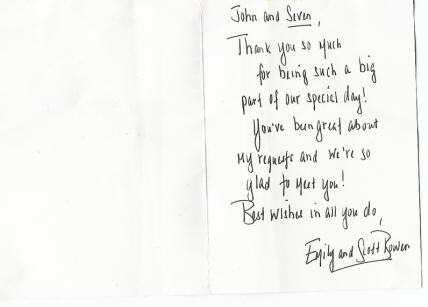 John and Seven,
Thank you so much
for being such a big
part of our special day!
You've been great about
my requests and we're so
glad to meet you!
Best wishes in all you do,
Emily and Scott Bowen